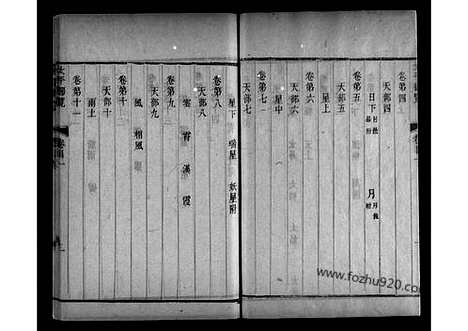 卷第四
天部四
卷第五
日下 日蝕 月 月蝕
天部五
星上
卷第六
天部六
星中
卷第七
天部七
星下 瑞星 妖星附
卷第八
天部八
霄 漢 霞
卷第九
天部九
風 相風
卷第十
天部十
雨上
卷第十一
www.fozhu920.com